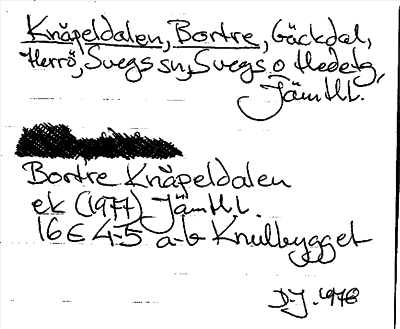 Knäpeldalen, Bortre, Gäckdal,
Herrö, Svegs sn, Svegs o Hedetg,
Jämtl.l.
Bortre Knäpeldalen
ek (1977) Jämtl.l.
16 E 4-5 a-b Knulbygget
D.J. 1978